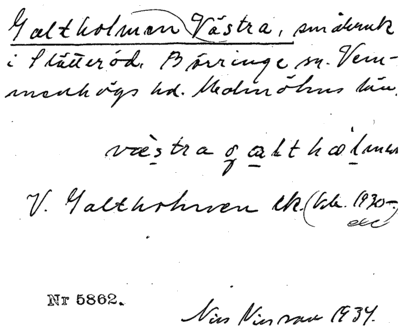 Galtholmen Västra, småbruk
i Slätteröd, Börringe sn. Vem-
menhögs hd. Malmöhus län.
væstra galthålmen
V. Galtholmen lk. (Gk. 1930-
etc
Nr 5862.
Nils Nilsson 1934.